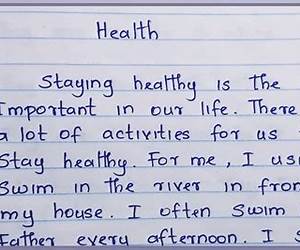 Health
Staying healthy is the
Important in our life. There
a lot of activities for us
Stay healthy. For me, I
Swim in the river in
my house. I often Swim
Father every afternoon. I